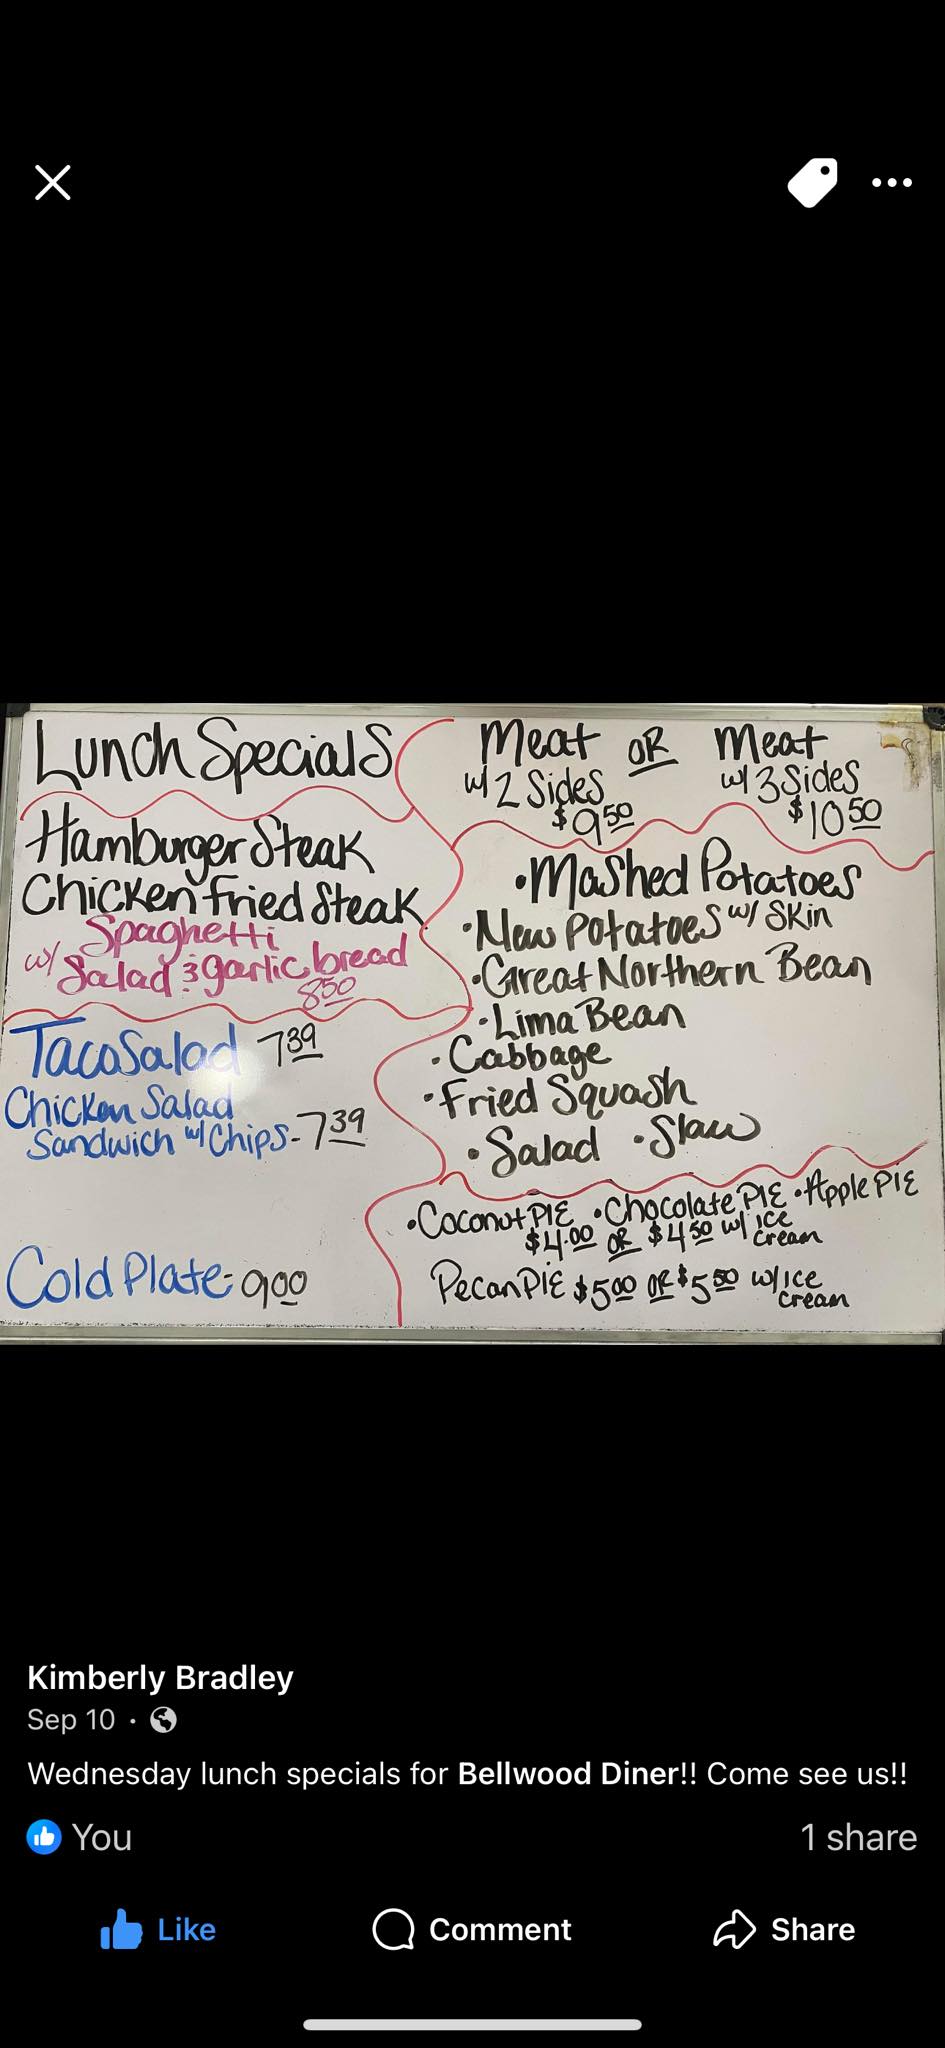 Lunch Specials
Hamburger Steak
Chicken Fried Steak
Spaghetti
w/ Salad & garlic bread
8.50
Taco Salad 7.39
Chicken Salad
Sandwich w/ Chips - 7.39
Cold Plate - 9.00
Meat OR Meat
w/ 2 Sides w/ 3 Sides
$9.50 $10.50
• Mashed Potatoes
• New Potatoes w/ Skin
• Great Northern Bean
• Lima Bean
• Cabbage
• Fried Squash
• Salad • Slaw
• Coconut PIE • Chocolate PIE • Apple PIE
$4.00 OR $4.50 w/ ICE cream
Pecan PIE $5.00 OR $5.50 w/ ICE cream
Kimberly Bradley
Sep 10 ·
Wednesday lunch specials for Bellwood Diner!! Come see us!!
You 1 share
Like Comment Share